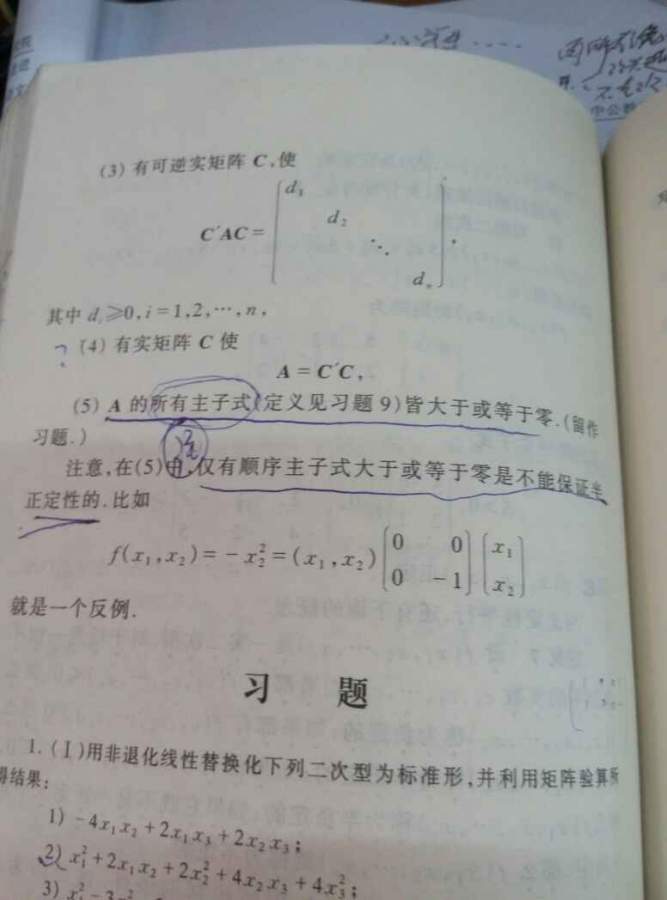 (3) 有可逆实矩阵 C,使
C′AC = [d₁ d₂ ⋱ dₙ],
其中 dᵢ≥0,i=1,2,⋯,n,
? (4) 有实矩阵 C 使
A = C′C,
(5) A 的所有主子式(定义见习题 9)皆大于或等于零.(留作
习题.)
注
注意,在(5)中,仅有顺序主子式大于或等于零是不能保证半
正定性的.比如
f(x₁,x₂)=-x₂²=(x₁,x₂)[0 0; 0 -1][x₁; x₂]
就是一个反例.
习 题
1. (Ⅰ)用非退化线性替换化下列二次型为标准形,并利用矩阵验算所
得结果:
1) -4x₁x₂+2x₁x₃+2x₂x₃;
2) x₁²+2x₁x₂+2x₂²+4x₂x₃+4x₃²;
3)
中公教